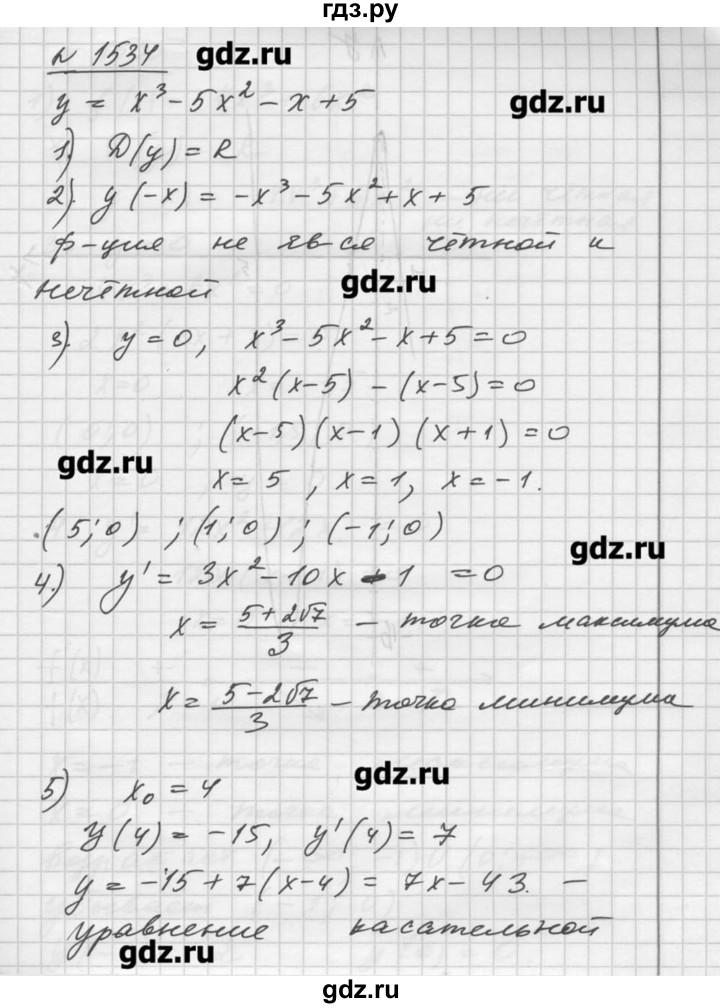 гдз.ру
№ 1534 gdz.ru
y = x³ - 5x² - x + 5 gdz.ru
1) D(y) = R
2). y(-x) = -x³ - 5x² + x + 5
ф-ция не яв-ся чётной и
нечётной gdz.ru
3). y = 0, x³ - 5x² - x + 5 = 0
x²(x-5) - (x-5) = 0
(x-5)(x-1)(x+1) = 0
gdz.ru
x = 5, x = 1, x = -1.
(5; 0) ; (1; 0) ; (-1; 0)
gdz.ru
4.) y' = 3x² - 10x - 1 = 0
x = (5+2√7)/3 - точка максимума
x = (5-2√7)/3 - точка минимума
gdz.ru
5) x₀ = 4
y(4) = -15, y'(4) = 7
y = -15 + 7(x-4) = 7x - 43. -
уравнение касательной
gdz.ru
gdz.ru